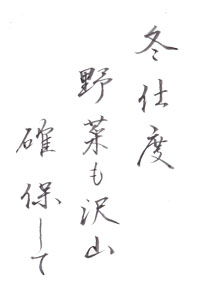 冬仕度
野菜も沢山
確保して